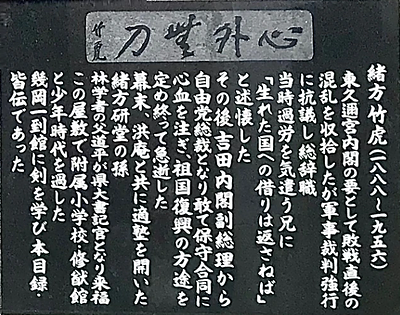 心外無刀
竹虎
緒方竹虎(一八八八~一九五六)
東久通宮内閣の要として敗戦直後の
混乱を収拾したが軍事裁判強行
に抗議し総辞職
当時過労を気遣う兄に
「生れた国への借りは返さねば」
と述懐した
その後吉田内閣副総理から
自由党総裁となり敢て保守合同に
心血を注ぎ、祖国復興の方途を
定め終って急逝した
幕末、洪庵と共に適塾を開いた
緒方研堂の孫
林学者の父道平が県大書記官となり来福
この屋敷で附属小学校・修猷館
と少年時代を過した
幾岡一到館に剣を学び本目録・
皆伝であった